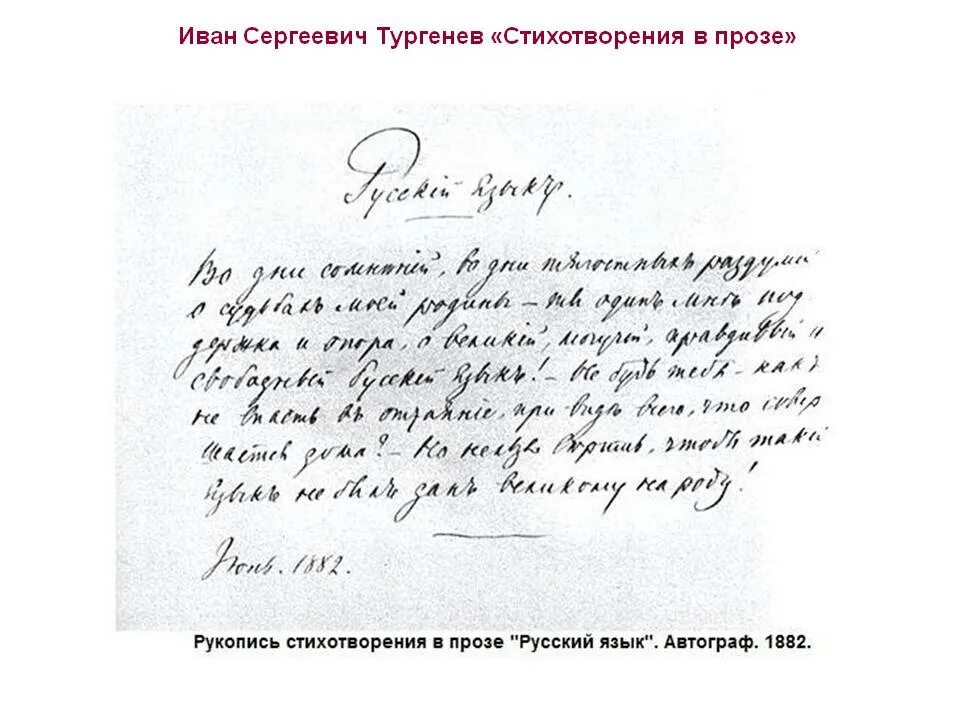 Иван Сергеевич Тургенев «Стихотворения в прозе»
Русскій Языкъ.
Во дни сомнѣній, во дни тягостныхъ раздумій
о судьбахъ моей родины – ты одинъ мнѣ под
держка и опора, о великій, могучій, правдивый и
свободный Русскій Языкъ! – Не будь тебя – какъ
не впасть въ отчаяніе, при видѣ всего, что совер
шается дома? – Но нельзя вѣрить, чтобы такой
Языкъ не былъ данъ великому народу!
Іюнь. 1882.
Рукопись стихотворения в прозе "Русский язык". Автограф. 1882.